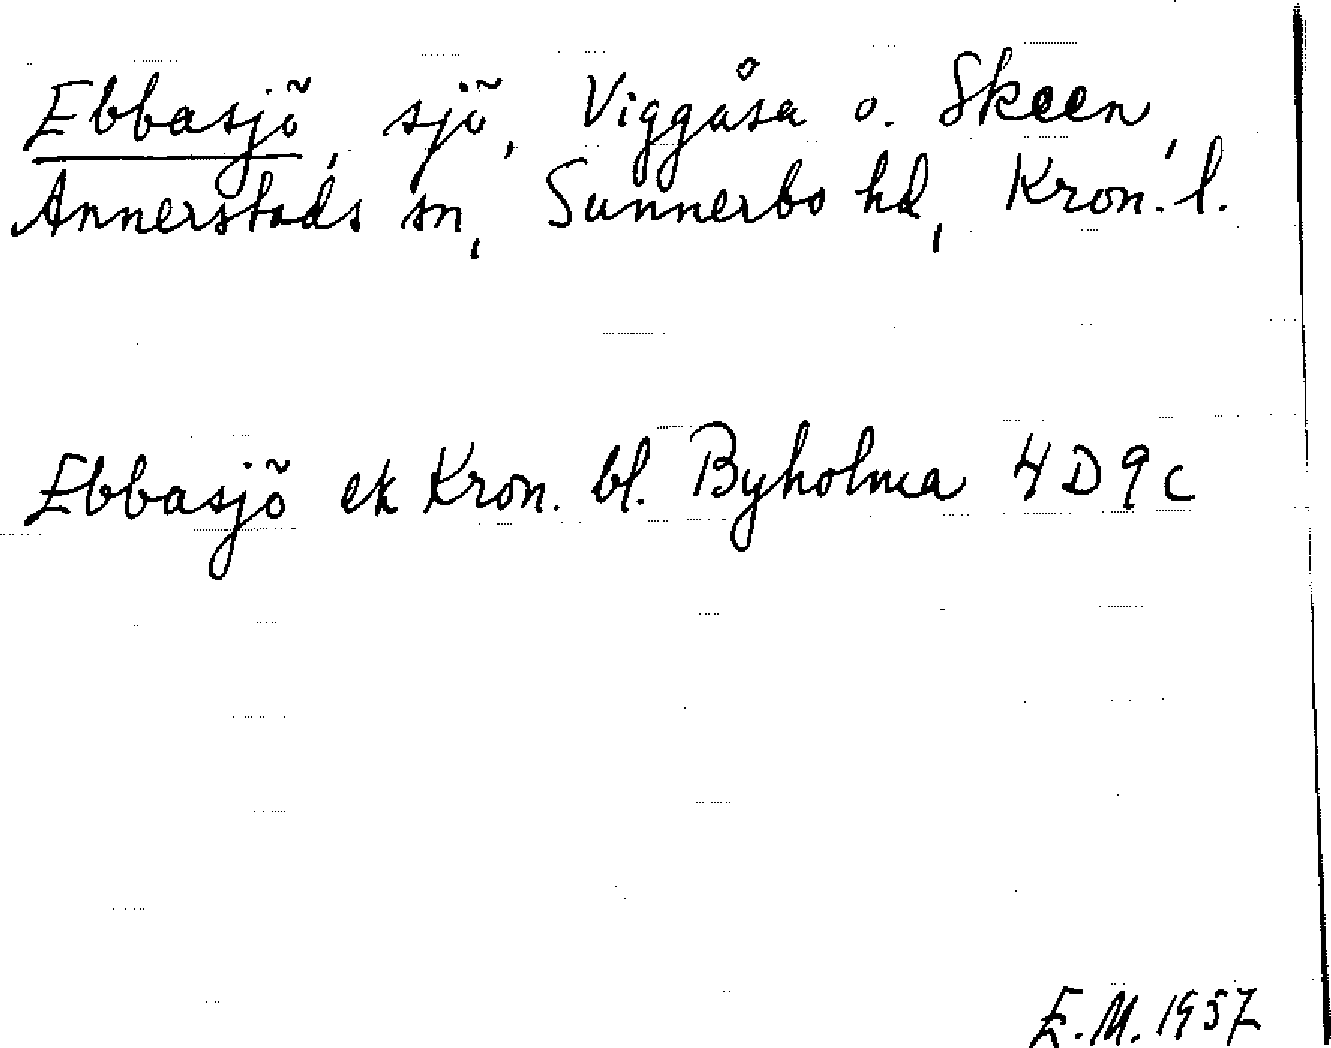 Ebbasjö, sjö, Viggåsa o. Skeen,
Annerstads sn, Sunnerbo hd, Kron. l.
Ebbasjö ek Kron. bl. Byholma 4 D 9 c
E. M. 1957